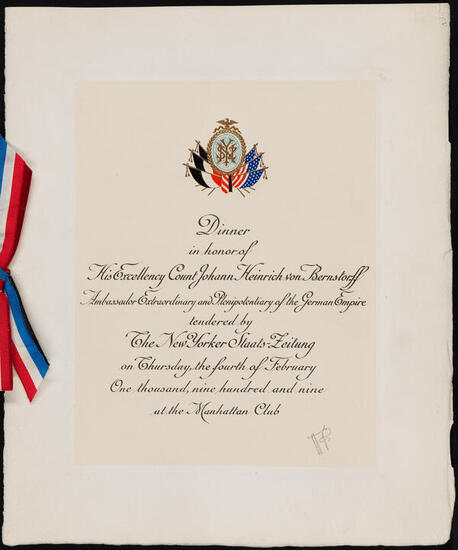 Dinner
in honor of
His Excellency Count Johann Heinrich von Bernstorff
Ambassador Extraordinary and Plenipotentiary of the German Empire
tendered by
The New Yorker Staats-Zeitung
on Thursday, the fourth of February
One thousand, nine hundred and nine
at the Manhattan Club